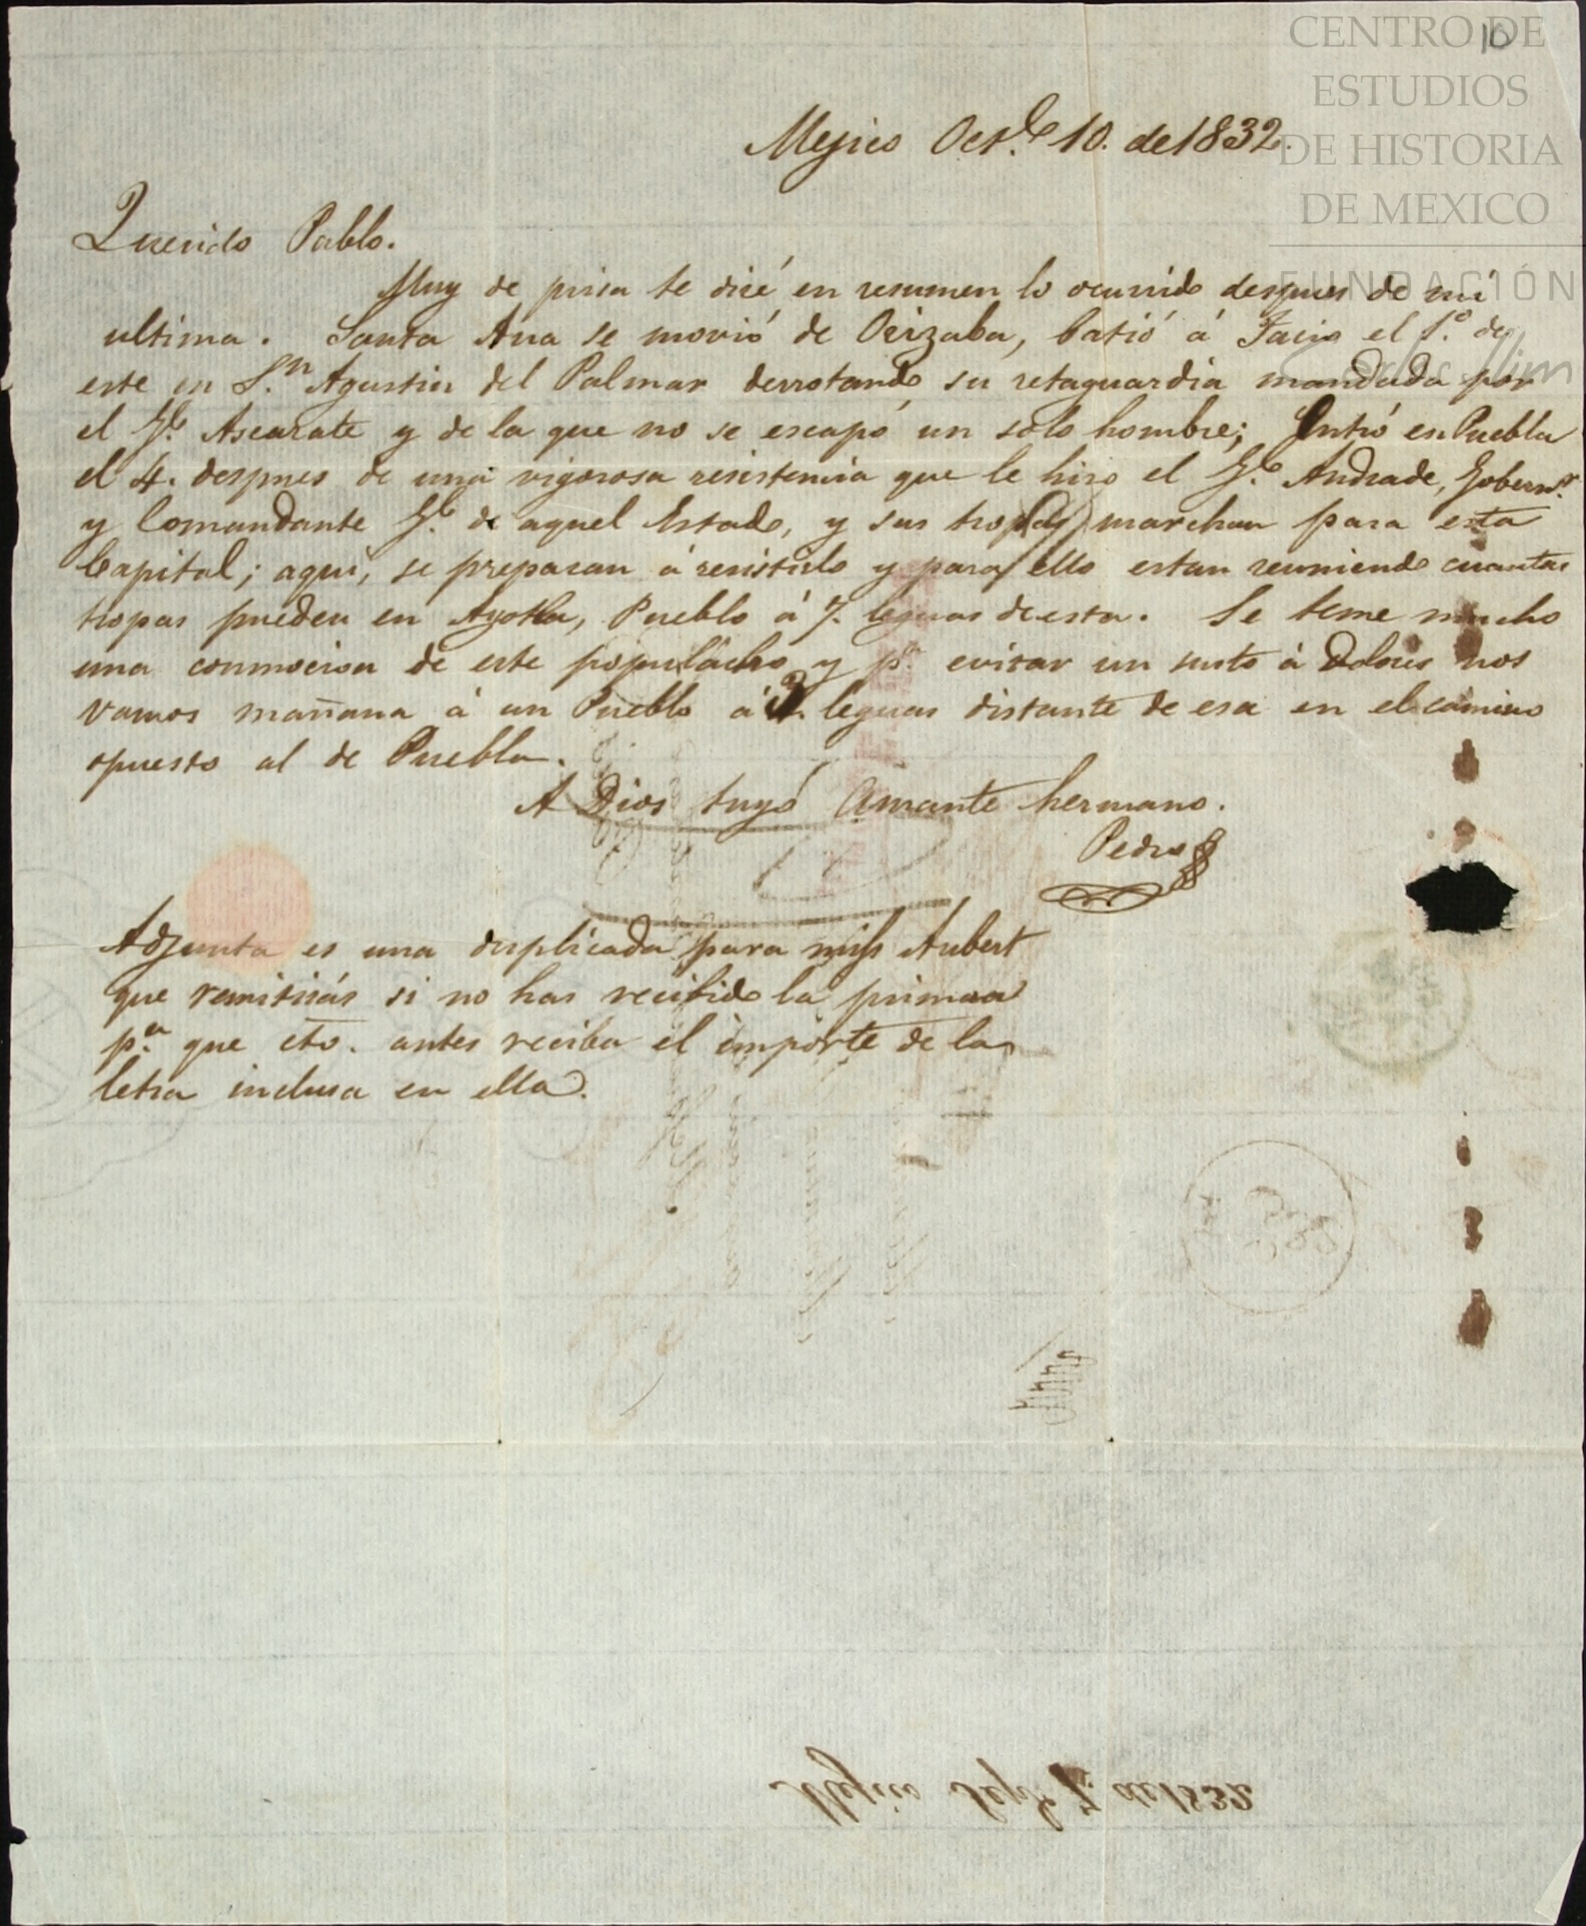 10
CENTRO DE
ESTUDIOS
DE HISTORIA
DE MEXICO
FUNDACIÓN
Carlos Slim
Mejico Oct.e 10. de 1832.
Querido Pablo.
Muy de prisa te diré en resumen lo ocurrido despues de mi
ultima. Santa Ana se movió de Orizaba, batió á Facio el 1.o de
este en S.n Agustin del Palmar derrotando su retaguardia mandada por
el G.l Ascarate y de la que no se escapó un solo hombre; Entró en Puebla
el 4. despues de una vigorosa resistencia que le hizo el G.l Andrade, Gobern.r
y Comandante G.l de aquel Estado, y sus tropas marchan para esta
Capital; aqui, se preparan á resistirlo y para ello estan reuniendo cuantas
tropas pueden en Ayotla, Pueblo á 7. leguas de esta. Se teme mucho
una conmocion de este populacho y p.a evitar un susto á Dolores nos
vamos mañana á un Pueblo á 3. leguas distante de esa en el camino
opuesto al de Puebla.
A Dios tuyó amante hermano.
Pedro
Adjunta es una duplicada para miss Aubert
que remitirás si no has recibido la primera
p.a que cto. antes reciba el importe de la
letra inclusa en ella.
Mejico Sept.e 7. de 1832